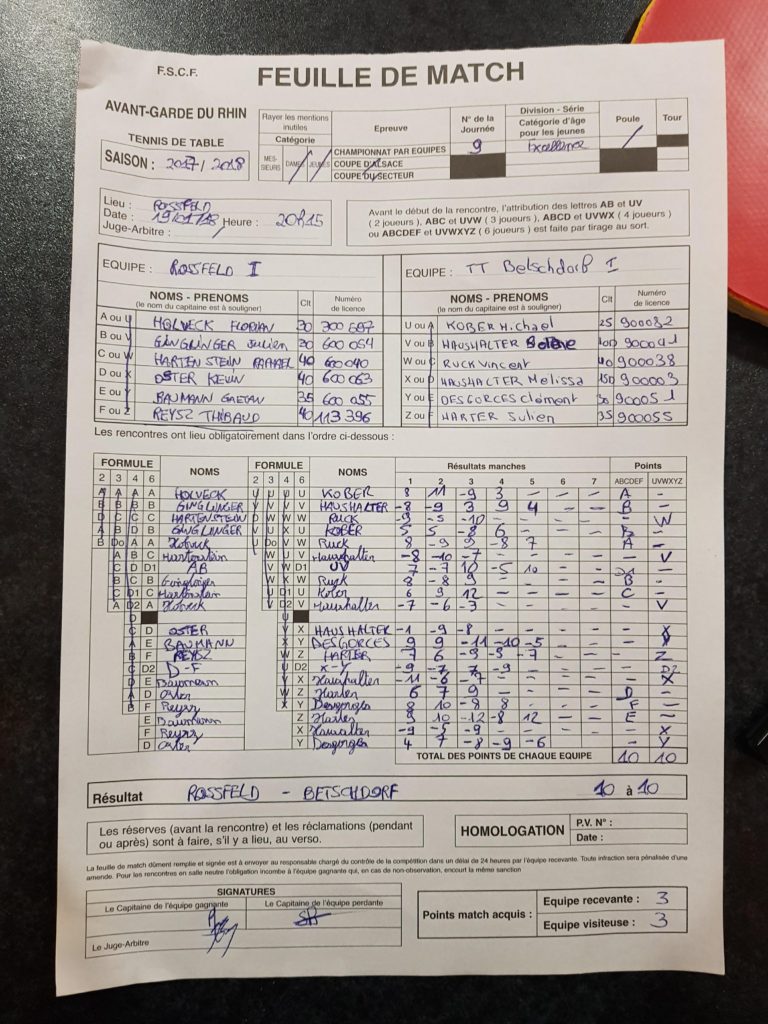 F.S.C.F.
FEUILLE DE MATCH
AVANT-GARDE DU RHIN
TENNIS DE TABLE
SAISON : 2017/2018
Rayer les mentions inutiles
Catégorie
MES-SIEURS DAMES JEUNES
Epreuve
CHAMPIONNAT PAR EQUIPES
COUPE D'ALSACE
COUPE DU SECTEUR
N° de la Journée
9
Division - Série
Catégorie d'âge pour les jeunes
Excellence
Poule
/
Tour
Lieu : ROSSFELD
Date : 19/01/18 Heure : 20h15
Juge-Arbitre :
Avant le début de la rencontre, l'attribution des lettres AB et UV
( 2 joueurs ), ABC et UVW ( 3 joueurs ), ABCD et UVWX ( 4 joueurs )
ou ABCDEF et UVWXYZ ( 6 joueurs ) est faite par tirage au sort.
EQUIPE : ROSSFELD I
NOMS - PRENOMS Clt Numéro de licence
(le nom du capitaine est à souligner)
A ou U HOLVECK FLORIAN 30 300 687
B ou V GINGLINGER Julien 30 600 054
C ou W HARTENSTEIN RAPHAEL 40 600 040
D ou X OSTER KEVIN 40 600 063
E ou Y BAUMANN GAETAN 35 600 055
F ou Z REYSZ THIBAUD 40 113 396
EQUIPE : TT Betschdorf I
NOMS - PRENOMS Clt Numéro de licence
(le nom du capitaine est à souligner)
U ou A KOBER Michael 25 900032
V ou B HAUSHALTER 900041
W ou C RUCK Vincent 40 900038
X ou D HAUSHALTER Melissa 150 900003
Y ou E DESGORGES Clément 30 900051
Z ou F HARTER Julien 35 900055
Les rencontres ont lieu obligatoirement dans l'ordre ci-dessous :
FORMULE NOMS FORMULE NOMS Résultats manches Points
2 3 4 6 2 3 4 6 1 2 3 4 5 6 7 ABCDEF UVWXYZ
A A A A HOLVECK U U U U KOBER 8 11 -9 3 - - - A -
B B B B GINGLINGER V V V V HAUSHALTER -8 -9 3 9 4 - - B -
D C C C HARTENSTEIN D W W W Ruck -9 -5 -10 - - - - - W
A B D B GINGLINGER V U X U KOBER 5 5 -8 6 - - - B -
B Do A A Holveck U Do V W Ruck 8 -9 9 -8 7 - - A -
A B C Hartenstein W U V Haushalter -8 -10 -7 - - - - - V
C D D1 AB V W D1 UV 7 -7 10 -5 10 - - D1 -
B C B Ginglinger W X W Ruck 8 -8 9 - - B -
C D1 C Hartenstein U D1 U Kober 6 9 12 - - - - C -
A D2 A Holveck V D2 V Haushalter -7 -6 -3 - - - - - V
D U
C D OSTER V X HAUSHALTER -1 -9 -8 - - - - - X
A E BAUMANN X Y DESGORGES 9 9 -11 -10 -5 - - - Y
B F REYSZ W Z HARTER 7 6 -9 -9 -7 - - - Z
C D2 D-F U D2 X-Y -9 -7 7 -9 - - - - D2
D E Baumann V X Haushalter -11 -6 -7 - - - - - X
A D Oster W Z Harter 6 7 9 - - - - D -
B F Reysz X Y Desgorges 8 10 -8 8 - - - F -
E Baumann Z Harter 9 10 -12 -8 12 - - E -
F Reysz X Haushalter -9 -5 -9 - - - - - X
D Oster Y Desgorges 4 7 -8 -9 -6 - - - Y
TOTAL DES POINTS DE CHAQUE EQUIPE 10 10
Résultat ROSSFELD - BETSCHDORF 10 à 10
Les réserves (avant la rencontre) et les réclamations (pendant
ou après) sont à faire, s'il y a lieu, au verso.
HOMOLOGATION
P.V. N° :
Date :
La feuille de match dûment remplie et signée est à envoyer au responsable chargé du contrôle de la compétition dans un délai de 24 heures par l'équipe recevante. Toute infraction sera pénalisée d'une
amende. Pour les rencontres en salle neutre l'obligation incombe à l'équipe gagnante qui, en cas de non-observation, encourt la même sanction
SIGNATURES
Le Capitaine de l'équipe gagnante
Le Capitaine de l'équipe perdante
Le Juge-Arbitre
Points match acquis :
Equipe recevante : 3
Equipe visiteuse : 3